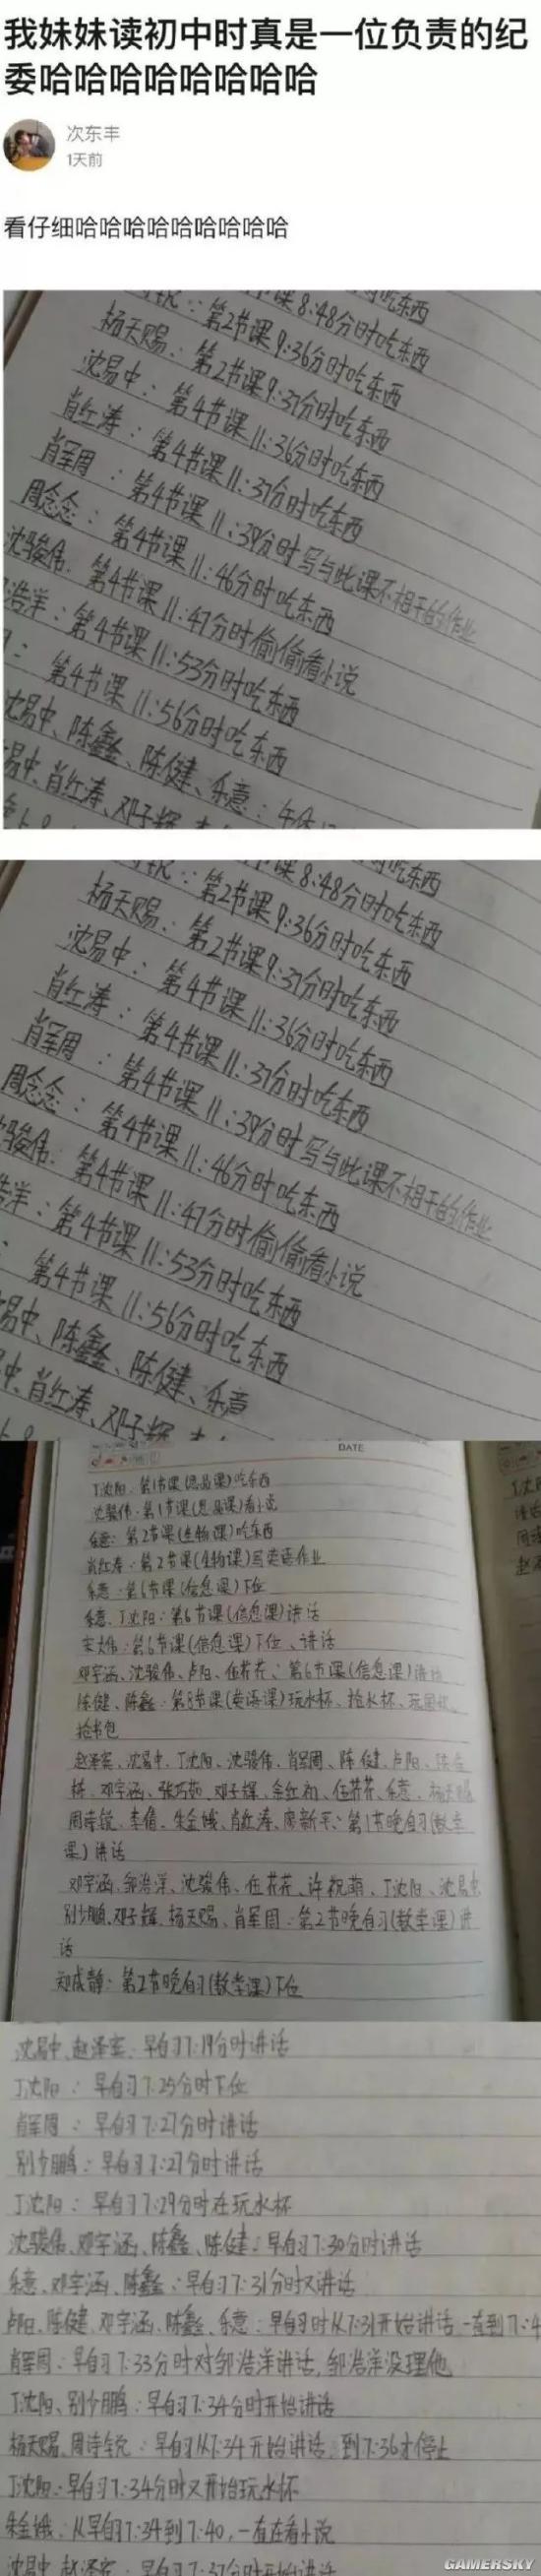 我妹妹读初中时真是一位负责的纪
委哈哈哈哈哈哈哈哈
次东丰
1天前
看仔细哈哈哈哈哈哈哈哈哈
课8:48分时吃东西
第2节课9:36分时吃东西
杨天赐:第2节课9:37分时吃东西
沈易中:第4节课11:36分时吃东西
肖红涛:第4节课11:37分时吃东西
肖军周:第4节课11:39分时写与此课不相干的作业
周念念:第4节课11:46分时吃东西
沈骏伟:第4节课11:47分时偷偷看小说
浩洋:第4节课11:53分时吃东西
:第4节课11:56分时吃东西
沈易中、陈鑫、陈健、乐意:午休
易中、肖红涛、邓子辉、
课8:48分时吃东西
第2节课9:36分时吃东西
杨天赐:第2节课9:37分时吃东西
沈易中:第4节课11:36分时吃东西
肖红涛:第4节课11:37分时吃东西
肖军周:第4节课11:39分时写与此课不相干的作业
周念念:第4节课11:46分时吃东西
骏伟:第4节课11:47分时偷偷看小说
浩洋:第4节课11:53分时吃东西
:第4节课11:56分时吃东西
易中、陈鑫、陈健、乐意
中、肖红涛、邓子辉、
DATE
丁沈阳:第1节课(思品课)吃东西
沈骏伟:第1节课(思品课)看小说
乐意:第2节课(生物课)吃东西
肖红涛:第2节课(生物课)写英语作业
乐意:第6节课(信息课)下位
乐意、丁沈阳:第6节课(信息课)讲话
宋大伟:第6节课(信息课)下位、讲话
邓宇涵、沈骏伟、卢阳、伍芹芹:第6节课(信息课)讲话
陈健、陈鑫:第8节课(英语课)玩水杯、抢水杯、玩
抢书包
赵泽宾、沈易中、丁沈阳、沈骏伟、肖军周、陈健、卢阳、
邓宇涵、张巧茹、邓子辉、余红初、伍芹芹、乐意、杨天赐
周诗锐、李倩、朱金娥、肖红涛、周新平:第1节晚自习(数学
课)讲话
邓宇涵、邹浩洋、沈骏伟、伍芹芹、许祝萌、丁沈阳、沈易中
别少鹏、邓子辉、杨天赐、肖军周:第2节晚自习(数学课)讲
话
成静:第2节晚自习(数学课)下位
沈易中、赵泽宾:早自习7:19分时讲话
丁沈阳:早自习7:25分时下位
肖军周:早自习7:27分时讲话
别少鹏:早自习7:27分时讲话
丁沈阳:早自习7:29分时在玩水杯
沈骏伟、邓宇涵、陈鑫、陈健:早自习7:30分时讲话
乐意、邓宇涵、陈鑫:早自习7:31分时又讲话
卢阳、陈健、邓宇涵、陈鑫、乐意:早自习时从7:31开始讲话一直到7:4
肖军周:早自习7:33分时对邹浩洋讲话,邹浩洋没理他
丁沈阳、别少鹏:早自习7:34分时开始讲话
杨天赐、周诗锐:早自习从7:34开始讲话,到7:36才停止
丁沈阳:早自习7:34分时又开始玩水杯
朱金娥:从早自习7:34到7:40,一直在看小说
沈易中、赵泽宾:早自习7:37分时开始讲话
GAMERSKY